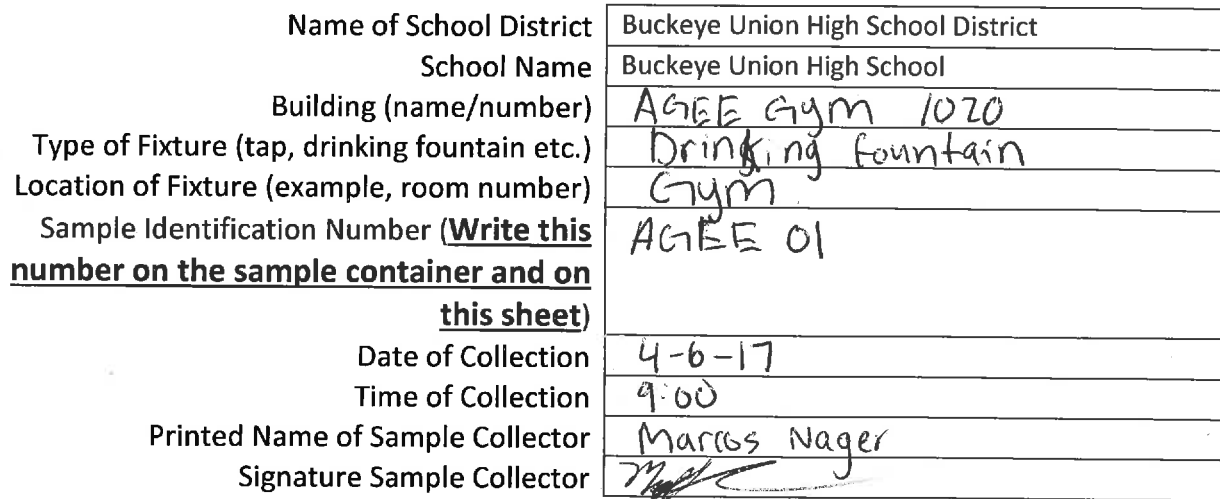 Name of School District Buckeye Union High School District
School Name Buckeye Union High School
Building (name/number) AGEE Gym 1020
Type of Fixture (tap, drinking fountain etc.) Drinking fountain
Location of Fixture (example, room number) Gym
Sample Identification Number (Write this AGEE 01
number on the sample container and on
this sheet)
Date of Collection 4-6-17
Time of Collection 9:00
Printed Name of Sample Collector Marcos Nager
Signature Sample Collector